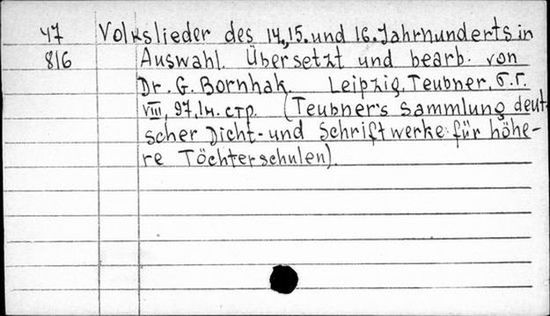 47 Volkslieder des 14, 15. und 16. Jahrhunderts in
816 Auswahl. Übersetzt und bearb. von
Dr. G. Bornhak. Leipzig, Teubner, б.г.
VIII, 97, 1 н. стр. (Teubner's Sammlung deut-
scher Dicht- und Schriftwerke für höhe-
re Töchterschulen).